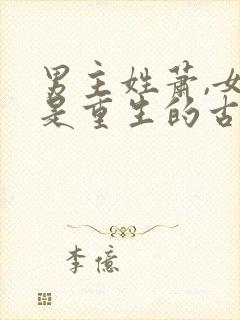 男主姓萧,女
是重生的古
李億